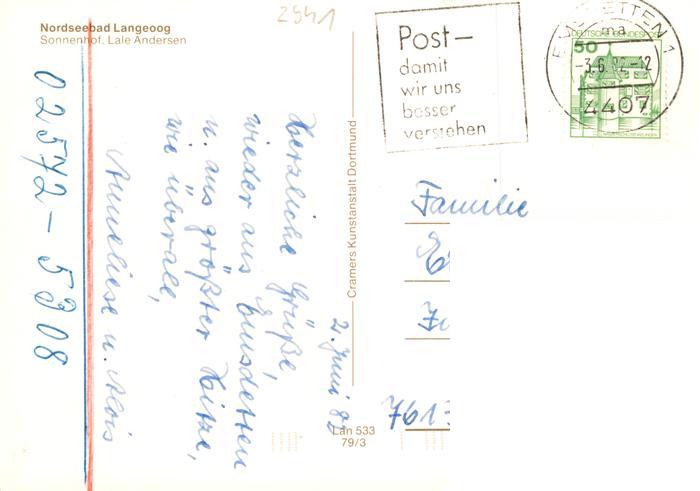 2941
Nordseebad Langeoog
Sonnenhof, Lale Andersen
02572 - 5908
2. Juni 82
Herzliche Grüße,
wieder aus Emsdetten
u. aus größter Hitze,
wie überall,
Anneliese u. Alois
Cramers Kunstanstalt Dortmund
Lan 533
79/3
Post-
damit
wir uns
besser
verstehen
EMSDETTEN 1
ma
-3.6.82-12
4407
DEUTSCHE BUNDESPOST
50
Familie
E
7613